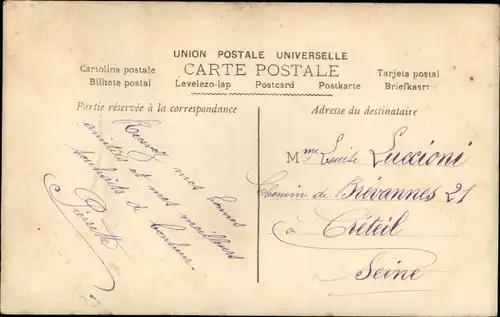 UNION POSTALE UNIVERSELLE
CARTE POSTALE
Cartolina postale
Tarjeta postal
Bilhete postal
Levelezo-lap
Postcard
Postkarte
Briefkaart
Partie réservée à la correspondance
Recevez mes bonnes
amitiés et mes meilleurs
souhaits de bonheur.
Pierrette
Adresse du destinataire
Mme Louise Luccioni
Chemin de Brévannes 21
à Créteil
Seine